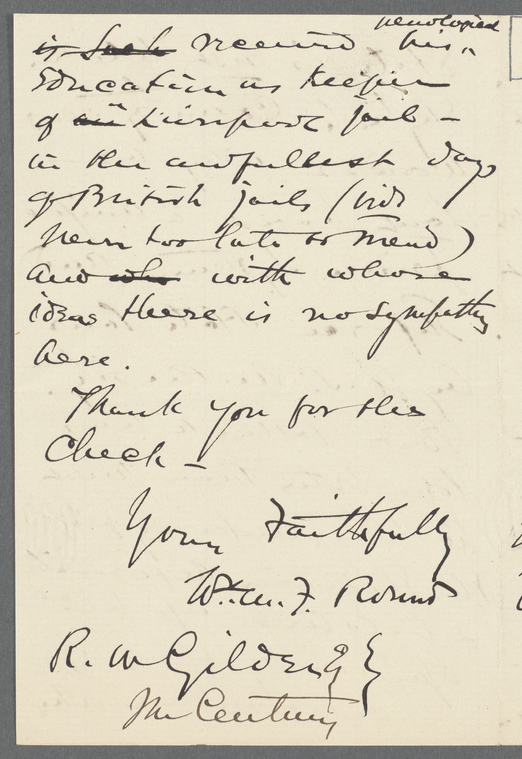 is such received his penological
Education as Keeper
of an Liverpool jail –
in the awfullest days
of British jails (vide
Never too late to Mend)
and who with whose
ideas there is no sympathy
here.
Thank you for the
Check –
Yours Faithfully
Wm. F. Round
R. W. Gilder Esq
The Century